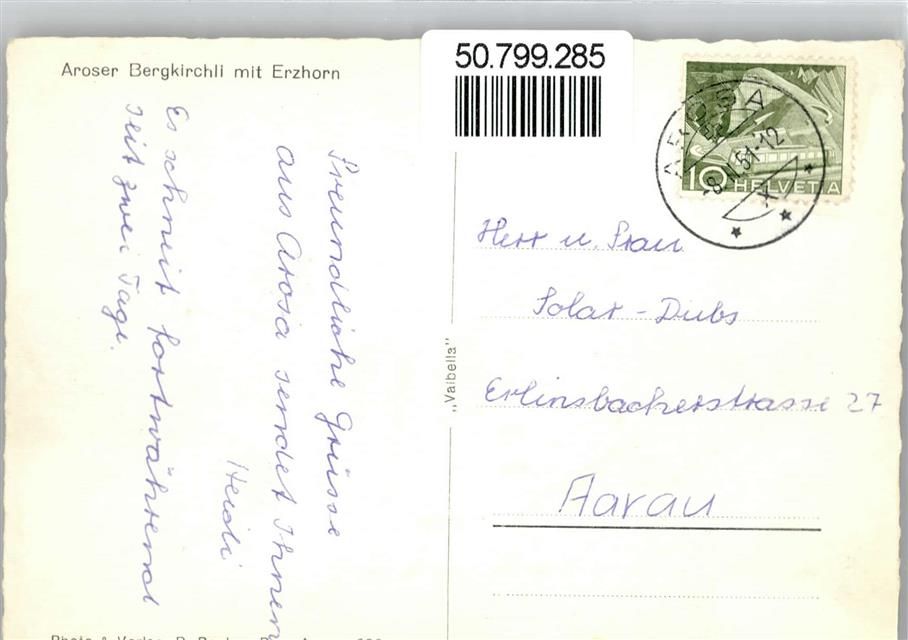 50.799.285
Aroser Bergkirchli mit Erzhorn
AROSA
-8.II.51-12
X
10 HELVETIA
Freundliche Grüsse
aus Arosa sendet Ihnen
Heidi
Es schneit fortwährend
seit zwei Tage.
"Valbella"
Herr u. Frau
Solar-Dubs
Erlinsbacherstrasse 27
Aarau